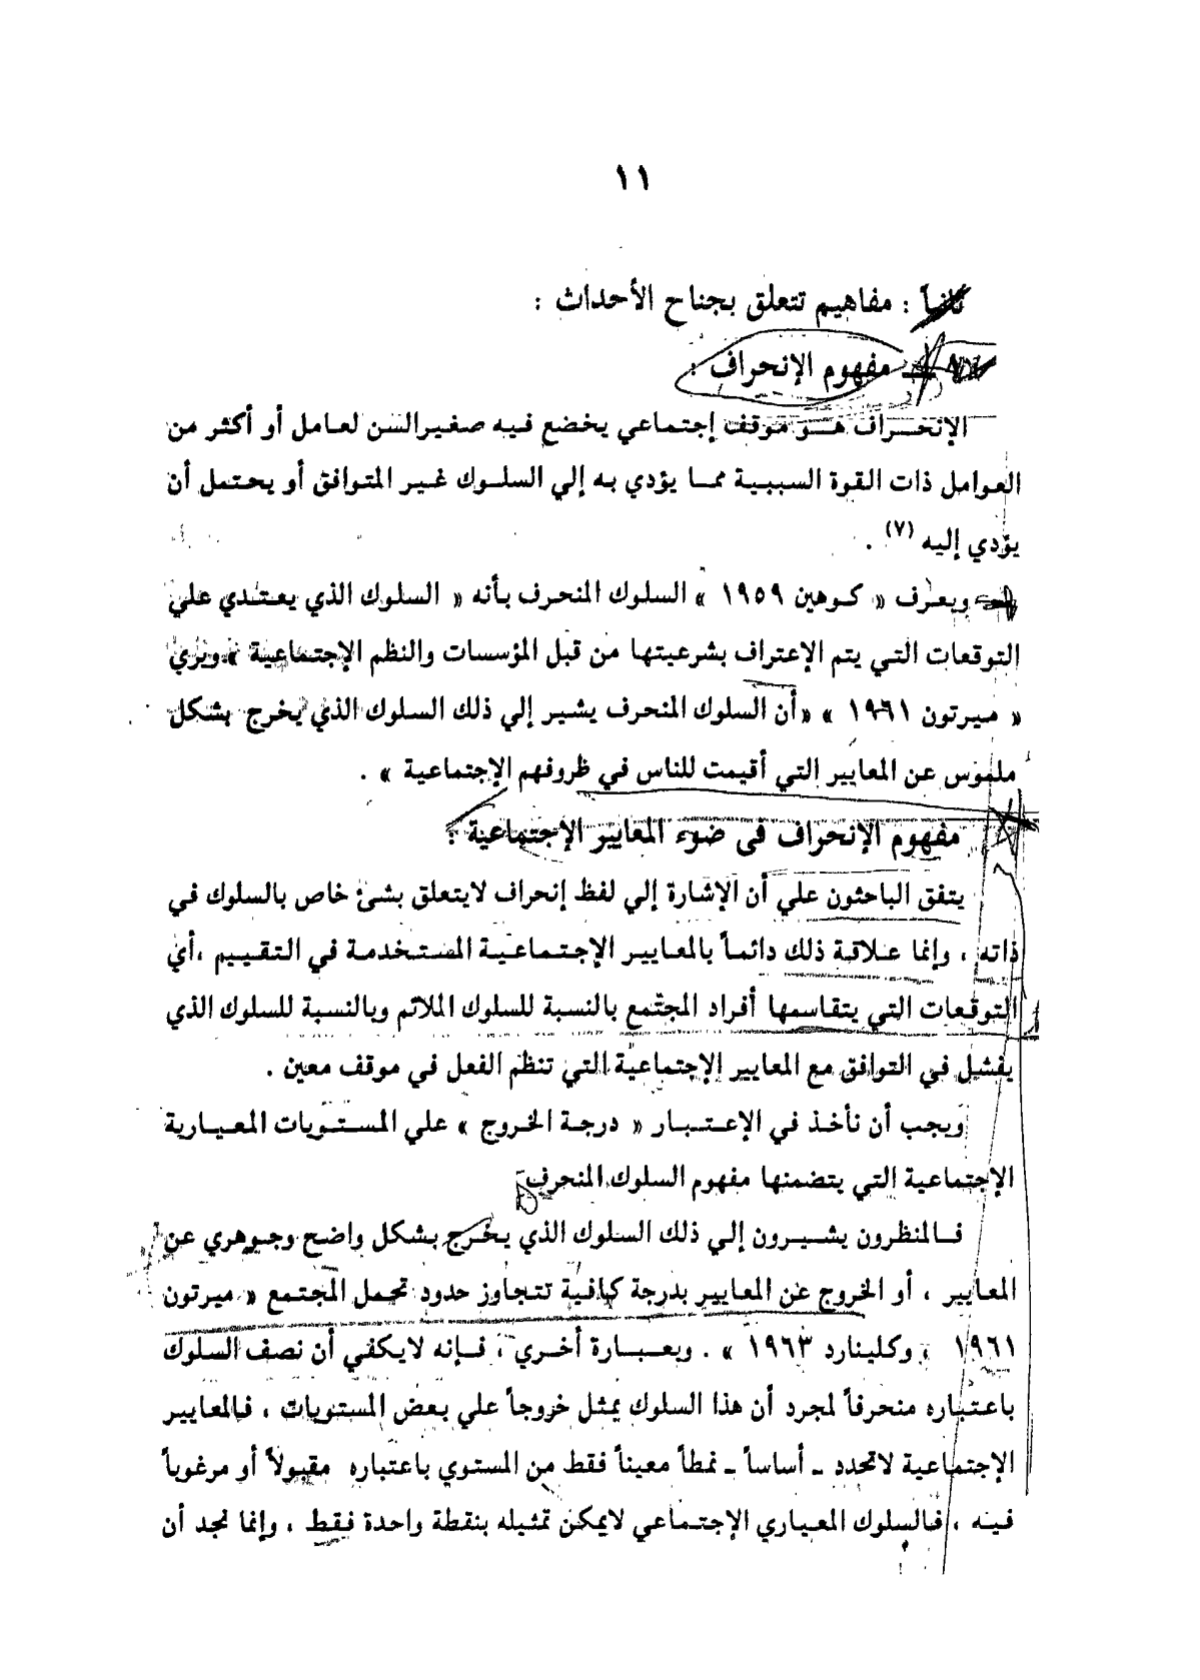 ١١
ثانياً : مفاهيم تتعلق بجناح الأحداث :
مفهوم الإنحراف :
الإنحراف هو موقف إجتماعي يخضع فيه صغير السن لعامل أو أكثر من
العوامل ذات القوة السببية مما يؤدي به إلي السلوك غير المتوافق أو يحتمل أن
يؤدي إليه (٧) .
ويعرف « كوهين ١٩٥٩ » السلوك المنحرف بأنه « السلوك الذي يعتدي علي
التوقعات التي يتم الإعتراف بشرعيتها من قبل المؤسسات والنظم الإجتماعية » ويري
« ميرتون ١٩٦١ » « أن السلوك المنحرف يشير إلي ذلك السلوك الذي يخرج بشكل
ملموس عن المعايير التي أقيمت للناس في ظروفهم الإجتماعية » .
مفهوم الإنحراف فى ضوء المعايير الإجتماعية :
يتفق الباحثون علي أن الإشارة إلي لفظ إنحراف لايتعلق بشئ خاص بالسلوك في
ذاته ، وإنما علاقة ذلك دائماً بالمعايير الإجتماعية المستخدمة في التقييم ،أي
التوقعات التي يتقاسمها أفراد المجتمع بالنسبة للسلوك الملائم وبالنسبة للسلوك الذي
يفشل في التوافق مع المعايير الإجتماعية التي تنظم الفعل في موقف معين .
ويجب أن نأخذ في الإعتبار « درجة الخروج » علي المستويات المعيارية
الإجتماعية التي يتضمنها مفهوم السلوك المنحرف
فالمنظرون يشيرون إلي ذلك السلوك الذي يخرج بشكل واضح وجوهري عن
المعايير ، أو الخروج عن المعايير بدرجة كافية تتجاوز حدود تحمل المجتمع « ميرتون
١٩٦١ ، وكلينارد ١٩٦٣ » . وبعبارة أخري ، فإنه لايكفي أن نصف السلوك
باعتباره منحرفاً لمجرد أن هذا السلوك يمثل خروجاً علي بعض المستويات ، فالمعايير
الإجتماعية لاتحدد ـ أساساً ـ نمطاً معيناً فقط من المستوي باعتباره مقبولاً أو مرغوباً
فيه ، فالسلوك المعياري الإجتماعي لايمكن تمثيله بنقطة واحدة فقط ، وإنما نجد أن